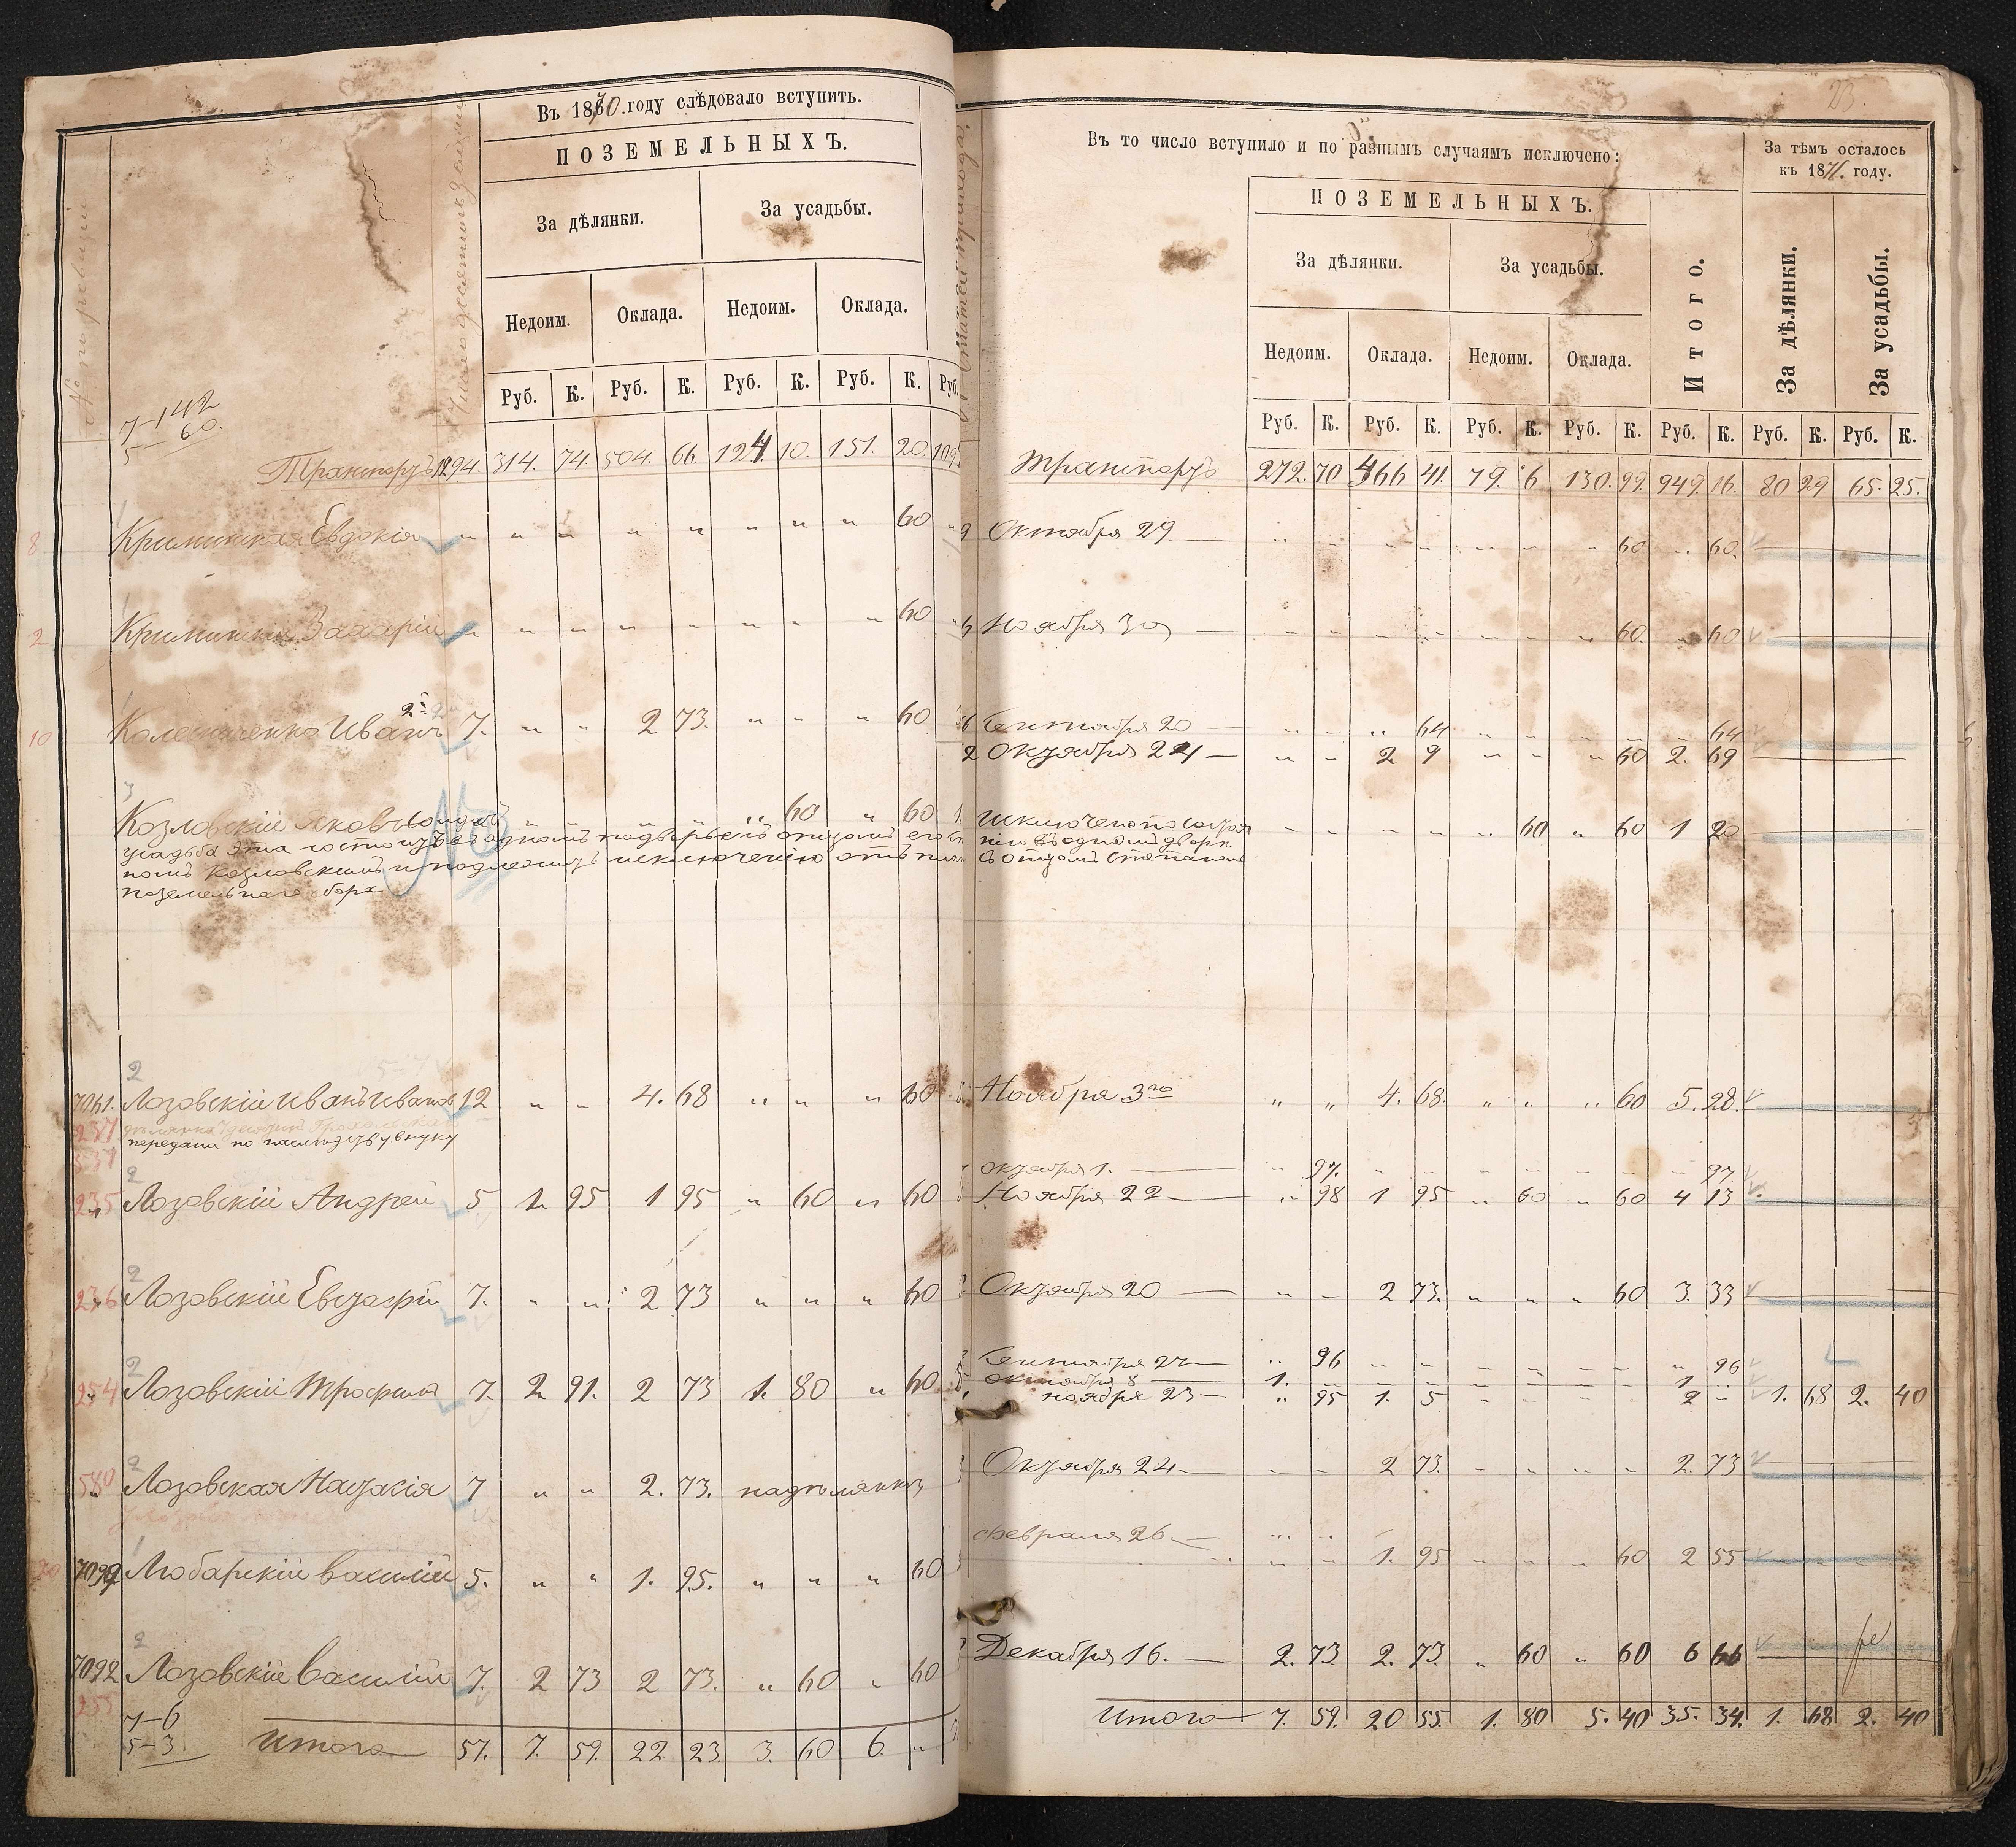 Въ 1870. году слѣдовало вступить.
ПОЗЕМЕЛЬНЫХЪ.
За дѣлянки. За усадьбы.
Недоим. Оклада. Недоим. Оклада.
Руб. К. Руб. К. Руб. К. Руб. К. Руб.
№ по ревизіи
Число десятинъ земли
7-142
5- 60.
Транспортъ 1294. 314. 74. 504. 66. 124. 10. 151. 20. 109
8 Евдокія " " " " " " " " 60
2 Захарій " " " " " " " " 60
10 Иванъ 2й 7. " " 2 73. " " " 60
Козловскій Яковъ " " " " " 60 " 60 1.
усадьба эта состоитъ въ одномъ подворьѣ съ отцомъ его
Козловскимъ и подлежитъ исключенію отъ
поземельнаго сбора
№3
2
7061. Лозовскій Иванъ Ивановъ 12 " " 4. 68 " " " 60
237
передана по наслѣдству внуку
537
2
235 Лозовскій Андрей 5 1. 95 1 95 " 60 " 60
2
236 Лозовскій Евстафій 7. " " 2 73 " " " 60
2
254 Лозовскій Трофимъ 7. 2 91. 2 73 1. 80 " 60
2
580 Лозовская Наталія 7 " " 2. 73.
Любарскій Василій 5. " " 1. 95. " " " 60
2
7092 Лозовскій Василій 7. 2 73 2 73. " 60 " 60
255
7-6
5-3 Итого 57. 7. 59. 22. 23. 3. 60. 6. "
23.
Въ то число вступило и по разнымъ случаямъ исключено:
За тѣмъ осталось
къ 1871. году.
ПОЗЕМЕЛЬНЫХЪ.
За дѣлянки. За усадьбы.
Недоим. Оклада. Недоим. Оклада.
Итого.
За дѣлянки.
За усадьбы.
Руб. К. Руб. К. Руб. К. Руб. К. Руб. К. Руб. К. Руб. К.
Транспортъ 272. 70 466 41. 79. 6 130. 99. 949. 16. 80 29 65. 25.
Октября 29 " " " " " " " 60. " 60.
Ноября 30 " " " " " " " 60. " 60
Сентября 20 " " " 64 " " " " " 64
Октября 24 " " 2 9 " " " 60 2. 69
Исключено по состоя
нію въ одномъ дворѣ " " " " " 60 " 60 1 20
съ отцомъ Степаномъ
Ноября 3го " " 4. 68. " " " 60 5. 28.
Октября 1. " 97. " " " " " " " 97.
Ноября 22 " 98 1 95 " 60 " 60 4 13
Октября 20 " " 2 73. " " " 60 3. 33
Сентября 27 " 96 " " " " " " " 96
Октября 8 1. " " " " " " " 1 "
ноября 23 " 95 1. 5 " " " " 2 " 1. 68 2. 40
Октября 24 " " 2 73. " " " " 2. 73
Февраля 26. " " 1. 95 " " " 60 2 55
Декабря 16. 2. 73. 2. 73. " 60 " 60 6 66
Итого 7. 59. 20 55. 1. 80 5. 40 35. 34. 1. 68 2. 40